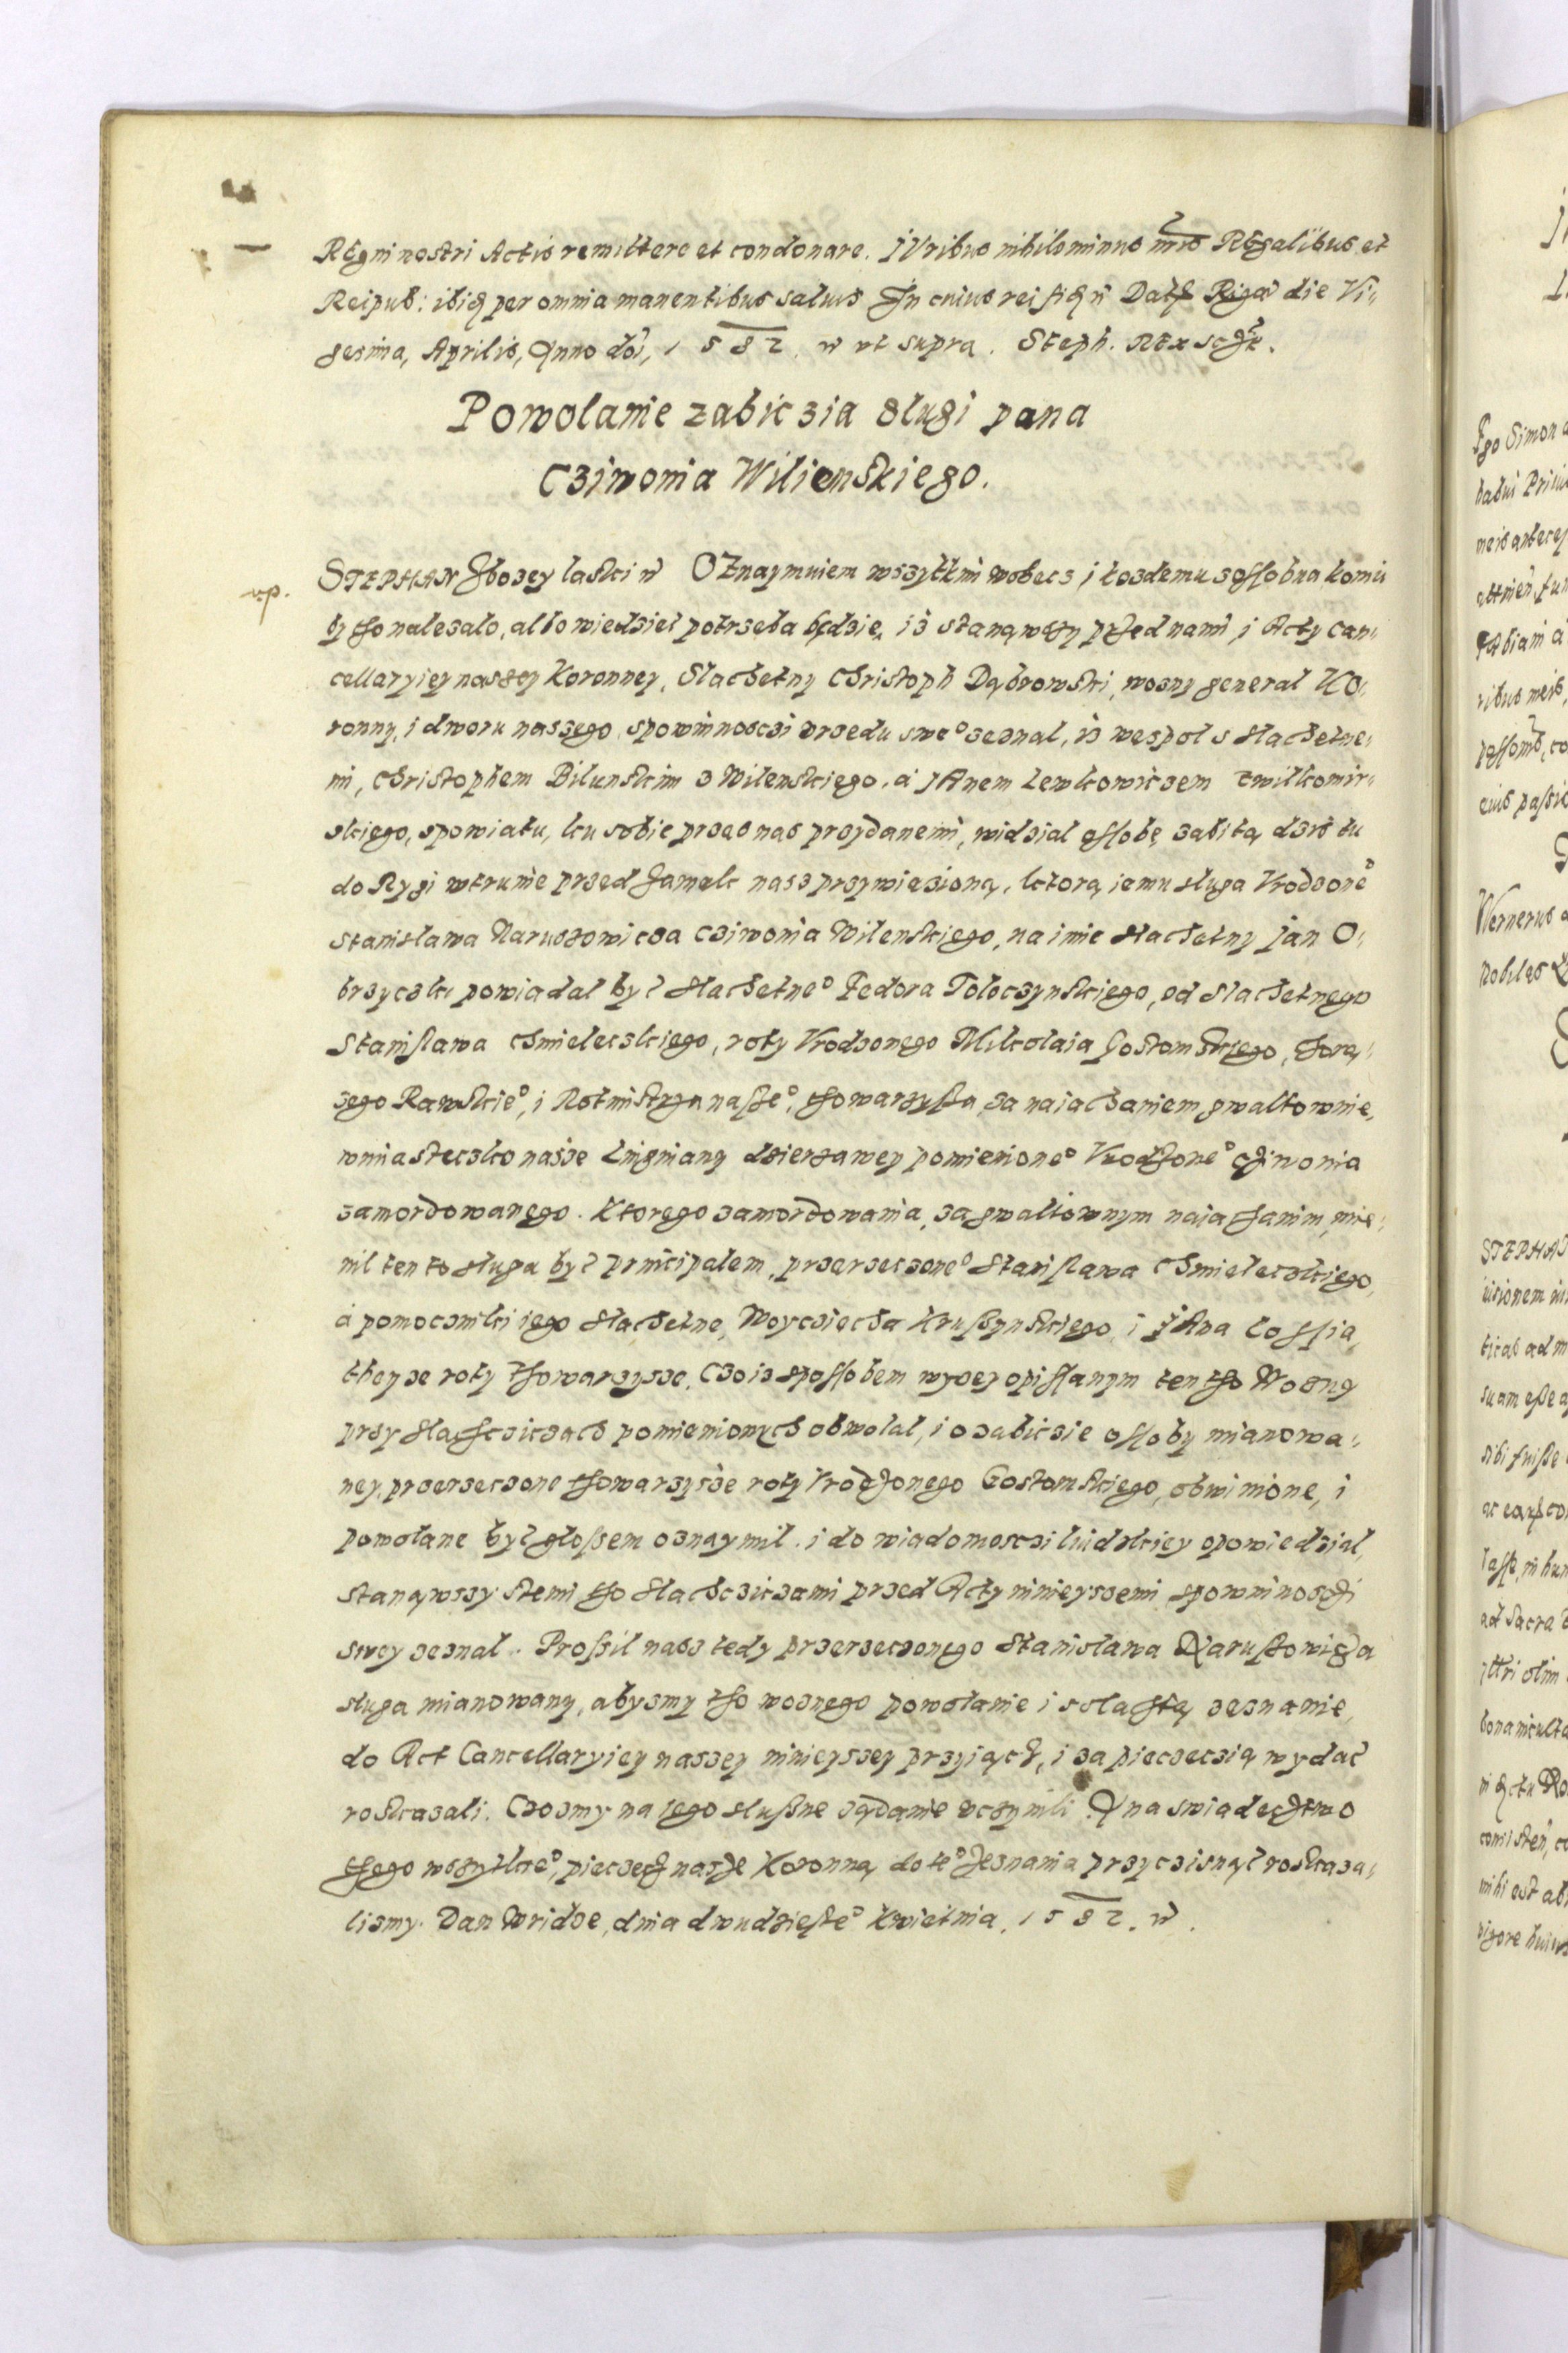 Regni nostri Actis remittere et condonare. IUribus nihilominus nris REgalibus et
Reipub: ibiq per omnia manentibus saluis In cuius rei fidē n̄ Dat Rigae die Vi„
gesima, Aprilis, Anno doi, 1582. n̄ vt supra. Steph. REx sc̄it.
Powolanie zabiczia slugi pana
Cziwonia Wilienskiego.
np.
STEPHAN zbozey laski n̄ OZnaymuiem wszytkim wobecz j kozdemu zossobna komu
by tho nalezalo, albo wiedziec potrzeba będzie, iz stanąwszy przed nami j Acty can„
cellaryiey naszey Koronney, Slachetny Christoph Dąbrowski, wozny general KO„
ronny, i dworu naszego, spowinnosczi vrzedu swe° zeznal, iz wespol s slachetne„
mi, Christophem Bilunskim z Wilenskiego. a JAnem Lewkowiczem zwilkomir„
skiego, spowiatu, ku sobie przes nas przydanemi, widzial ossobę zabitą dzis tu
do Rygi wtrumie przed zamek nasz przywiezioną, ktorą iemu sluga Vrodzone°
Stanislawa Naruszowicza Cziwonia Wilenskiego, na imie slachetny Jan O„
brzyczki powiadal być slachetne° Fedora Toloczynskiego, od slachetnego
Stanislawa Chmieleczkiego, roty Vrodzonego Mikolaia Gostomskiego, chorą„
zego Rawskie°, i Rotmistrza nasze°, thowarzysza, za naiachaniem gwaltownie,
wmiasteczko nasze Lingniany dzierzawey pomienione° Vrodzone° cziwonia
zamordowanego. Ktorego zamordowania, za gwaltownym naiachanim, mie„
nil ten to sluga być principalem, przerzeczone° Stanislawa Chmieleczkiego,
a pomoczniki iego slachetne, Woyciecha Kruszynskiego i JAna Lossia,
theyze roty thowarzysze. Czo iz sposobem wyzey opissanym ten tho Wozny
przy slachcziczach pomienionych obwolal, i o zabiczie ossoby mianowa„
ney, przerzeczone thowarzysze roty Vrodzonego Gostomskiego, obwinione, i
powolane być glossem oznaymil. i do wiadomosczi liudzkiey opowiedzial,
stanąwszy stemi tho slachcziczami przed Acty ninieyszemi spowinnosczi
swey zeznal. Prossil nasz tedy przerzeczonego Stanislawa Naruszowicza
sluga mianowany, abysmy tho woznego powolanie i s slachtą zeznanie,
do Act Cancellaryiey naszey ninieyszey przyiąć, i za pieczecią wydać
roskazali. Czosmy na iego sluszne ządanie vczynili. A na swiadecztwo
thego wszytkie°, pieczęć nasze Koronną do te° zeznania przyczisnąć roskaza„
lismy. Dan Wridze, dnia dwudzieste° kwietnia, 1582. n̄.